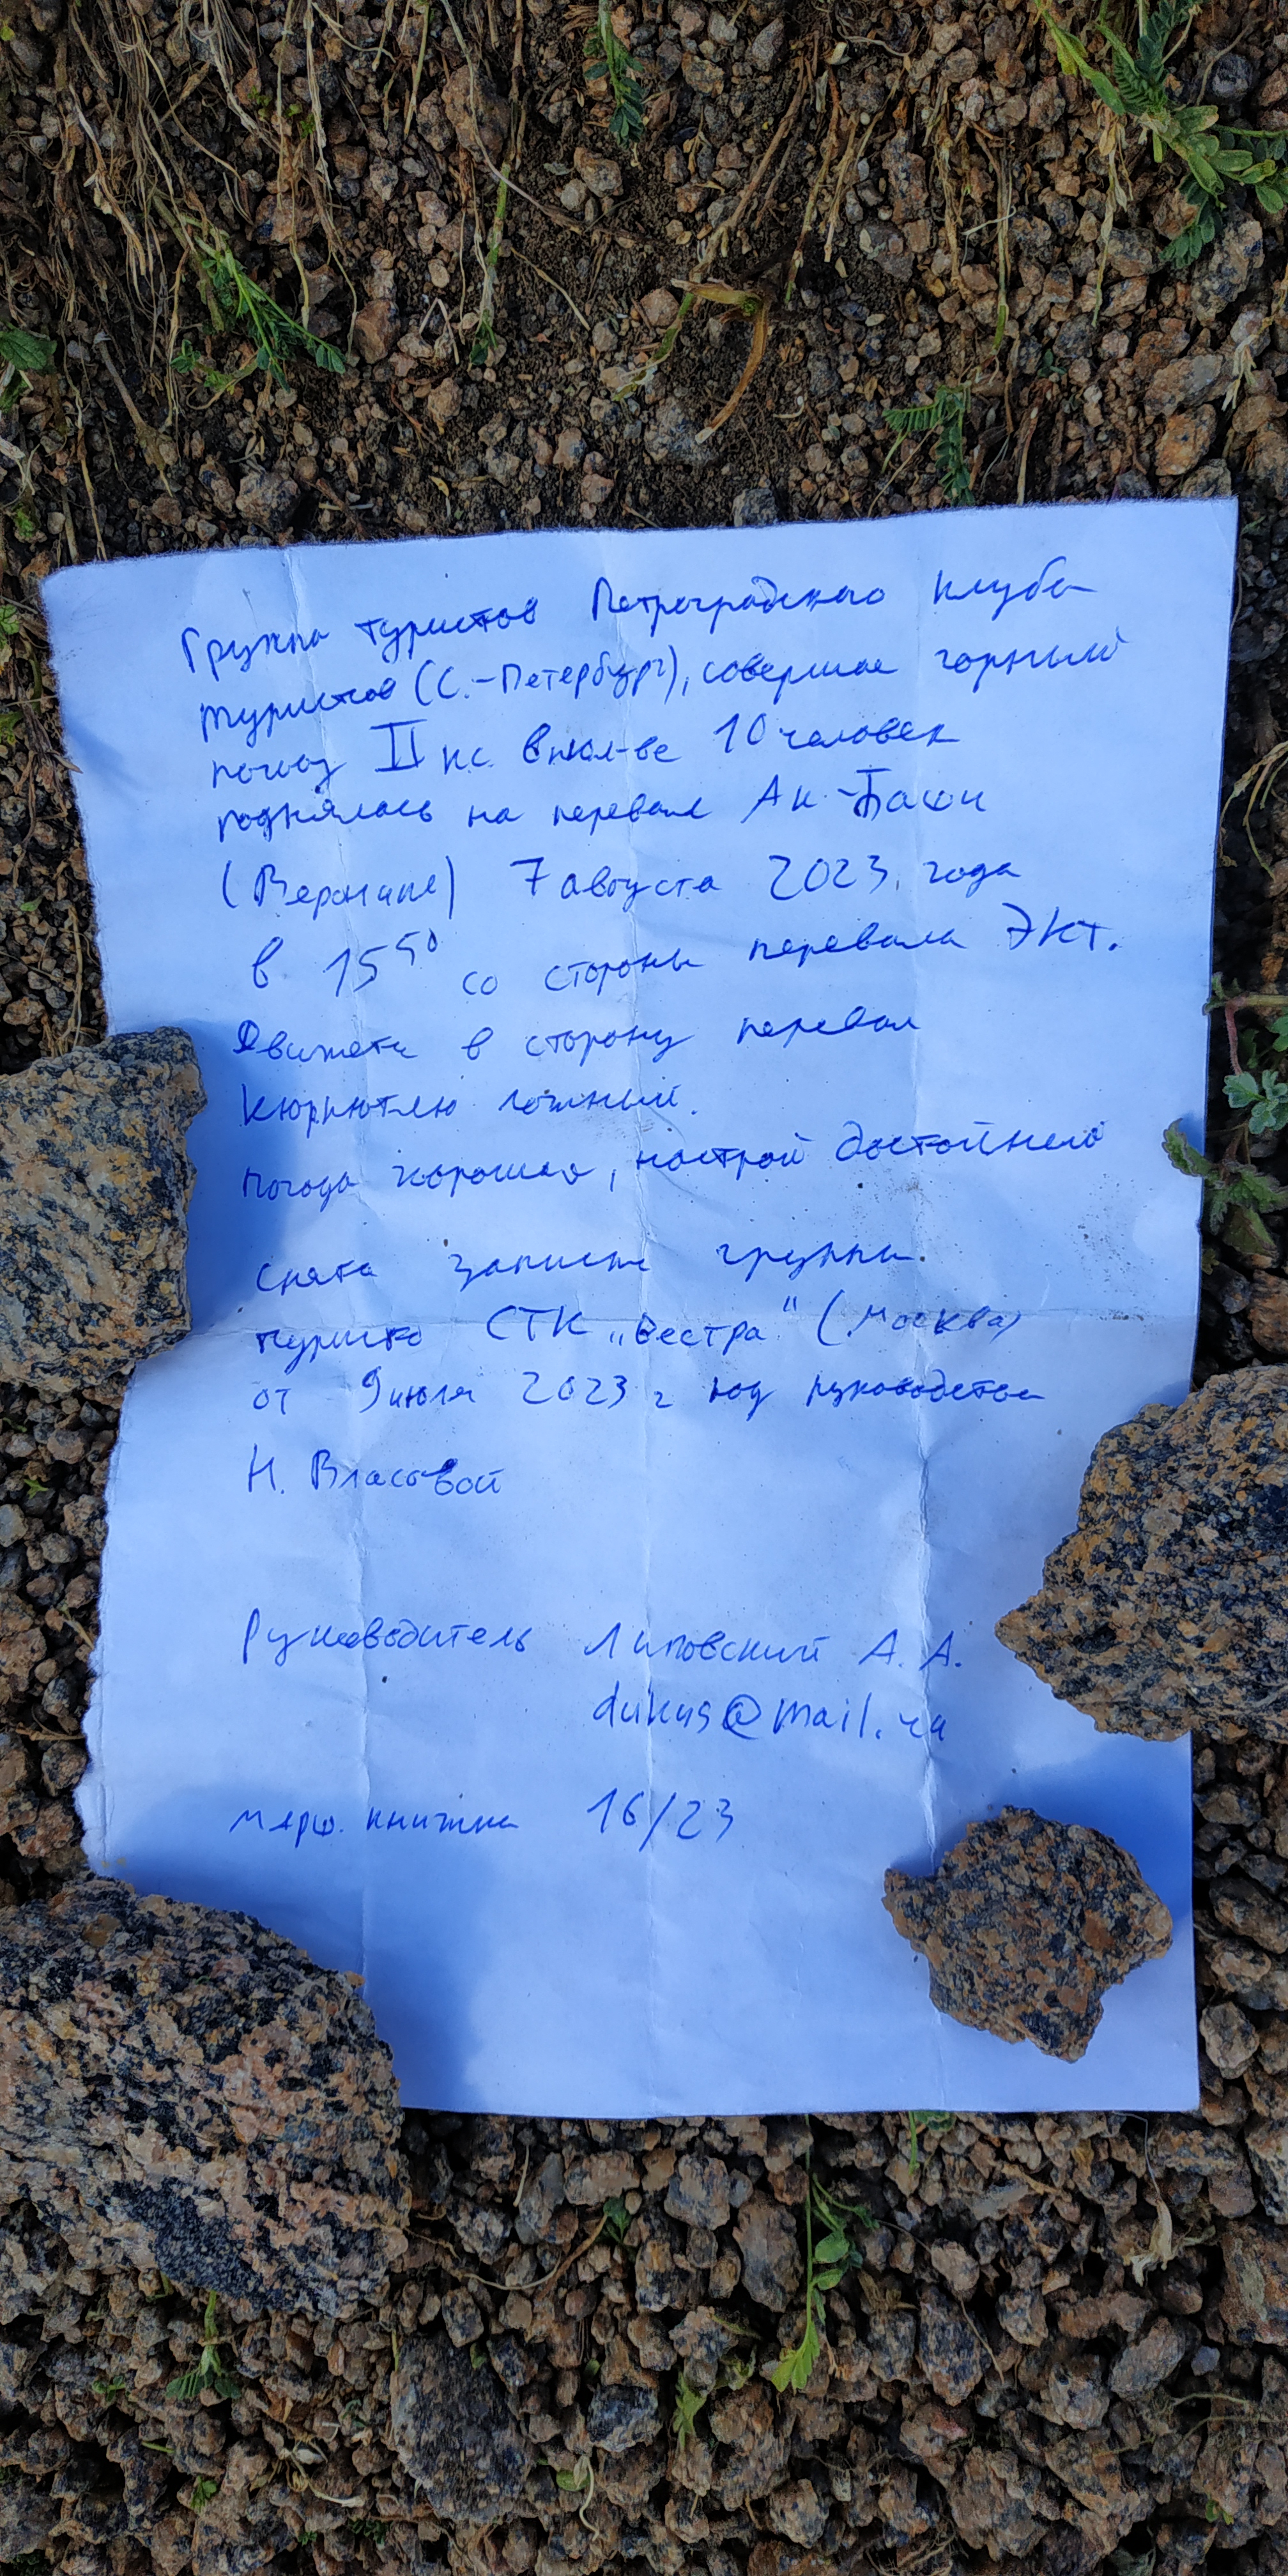 Группа туристов Петроградского клуба
туристов (С.-Петербург), совершая горный
поход II кс в кол-ве 10 человек
поднялась на перевал Ак-Баши
(Верхние) 7 августа 2023 года
в 15 50 со стороны перевала ЭКТ.
Движется в сторону перевал
Кюрлютлю ложный.
Погода хорошая, настрой достойный
Снята записка группы
туристов СТК „Вестра" (Москва)
от 9 июля 2023 г под руководством
Н. Власовой
Руководитель Липовский А. А.
dukus@mail.ru
марш. книжка 16/23